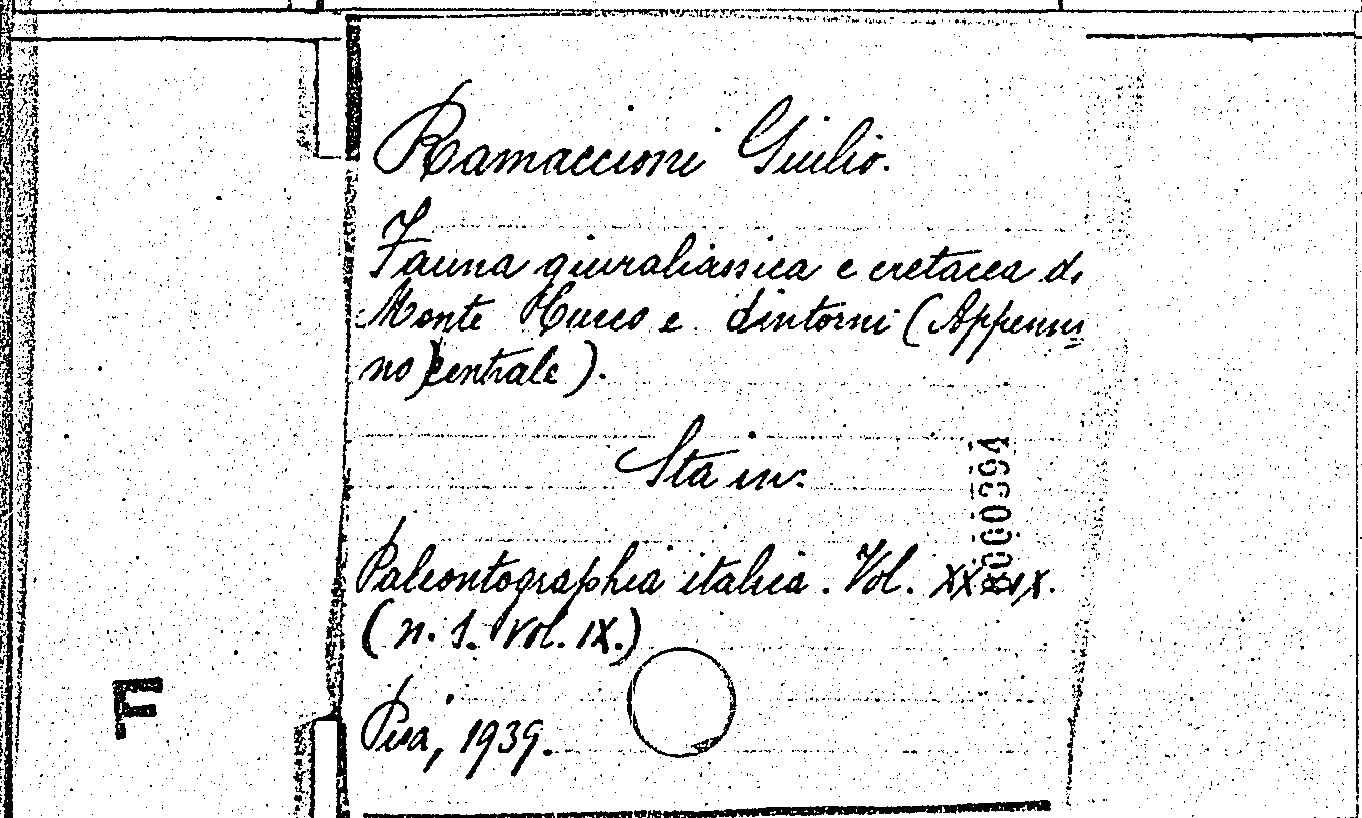 Ramaccioni Giulio.
Fauna giuraliassica e cretacea di
Monte Cucco e dintorni (Appenni
no) centrale).
Sta in:
Paleontographia italica. Vol. XXXIX.
(n. s. Vol. IX.)
Pisa, 1939.
000394
F